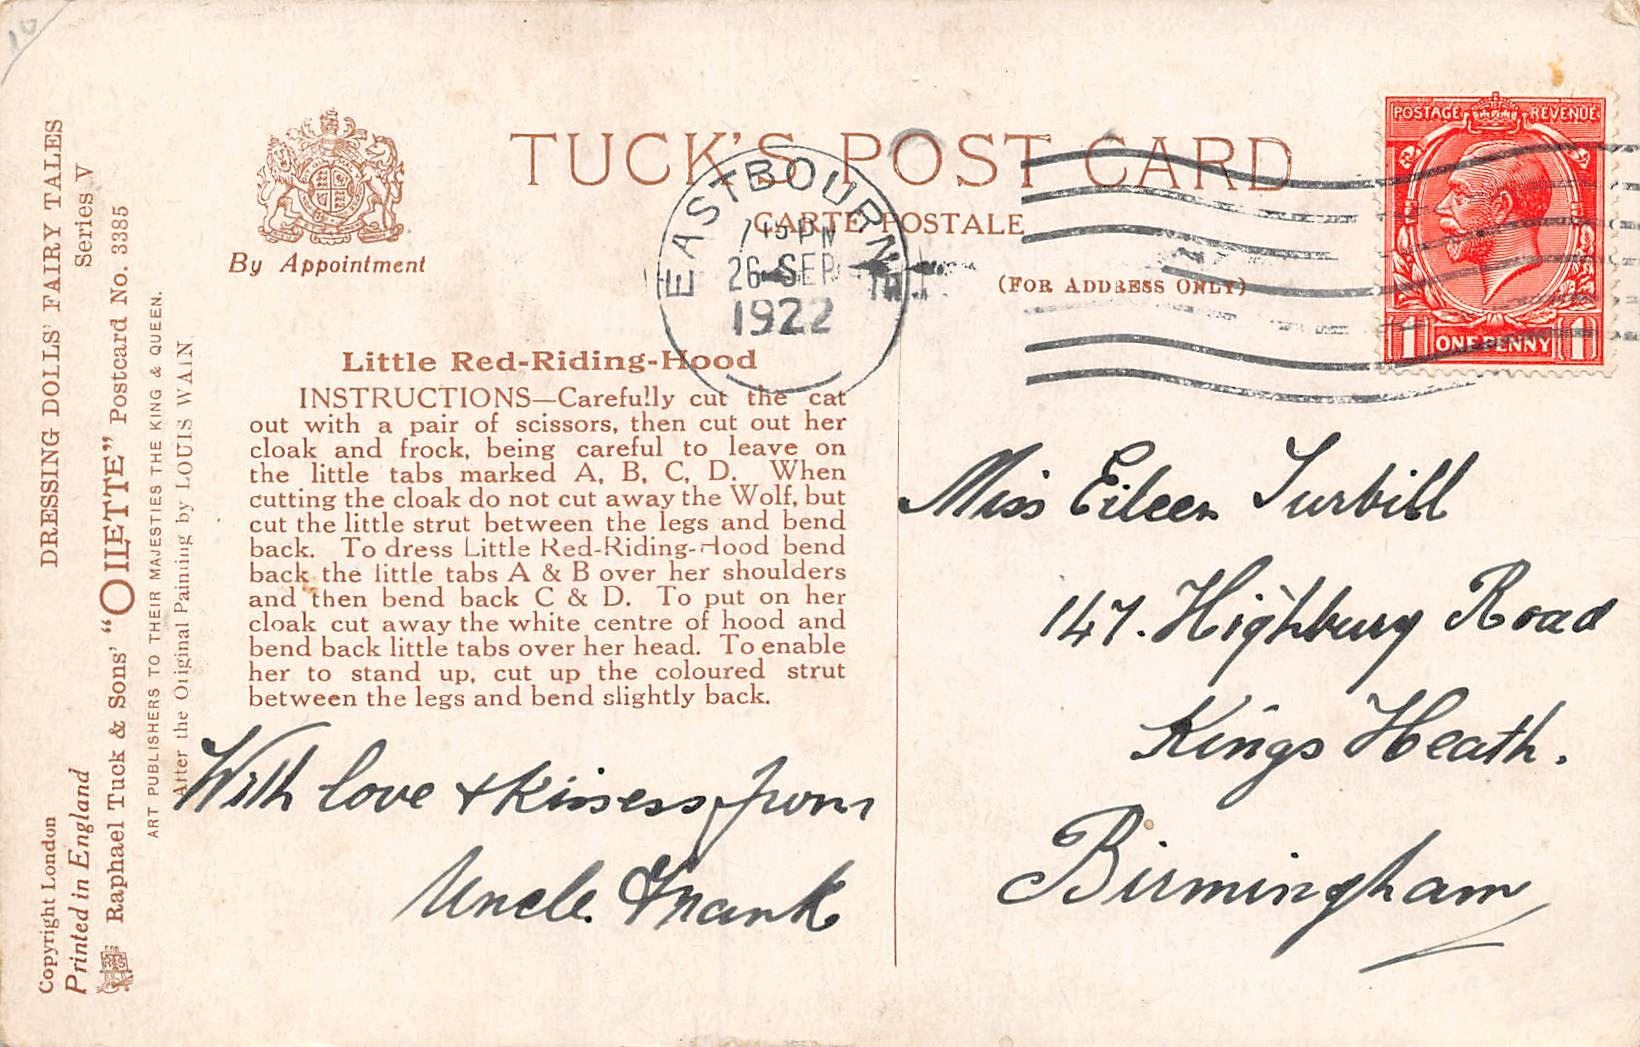 TUCK'S POST CARD
CARTE POSTALE
(FOR ADDRESS ONLY)
By Appointment
EASTBOURNE
7 15 PM
26 SEP
1922
POSTAGE REVENUE
1 ONE PENNY 1
DRESSING DOLLS' FAIRY TALES
Series V
Raphael Tuck & Sons' "OILETTE" Postcard No. 3385
ART PUBLISHERS TO THEIR MAJESTIES THE KING & QUEEN.
After the Original Painting by LOUIS WAIN
Copyright London
Printed in England
Little Red-Riding-Hood
INSTRUCTIONS—Carefully cut the cat
out with a pair of scissors, then cut out her
cloak and frock, being careful to leave on
the little tabs marked A, B, C, D. When
cutting the cloak do not cut away the Wolf, but
cut the little strut between the legs and bend
back. To dress Little Red-Riding-Hood bend
back the little tabs A & B over her shoulders
and then bend back C & D. To put on her
cloak cut away the white centre of hood and
bend back little tabs over her head. To enable
her to stand up, cut up the coloured strut
between the legs and bend slightly back.
With love & Kissess from
Uncle. Frank
Miss Eileen Turbill
147. Highbury Road
Kings Heath.
Birmingham